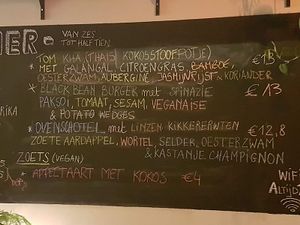 VAN ZES
TOT HALF TIEN
* TOM KHA (THAIS KOKOSSTOOFPOTJE)
* MET GALANGAL, CITROENGRAS, BAMBOE,
OESTERZWAM, AUBERGINE, JASMIJNRIJST & KORIANDER
* BLACK BEAN BURGER MET SPINAZIE € 13
PAKSOI, TOMAAT, SESAM, VEGANAISE
& POTATO WEDGES
* OVENSCHOTEL MET LINZEN KIKKERERWTEN € 12,8
ZOETE AARDAPPEL, WORTEL, SELDER, OESTERZWAM
& KASTANJE CHAMPIGNON
ZOETS (VEGAN)
* APPELTAART MET KOKOS €4
WiFi
ALTIJD